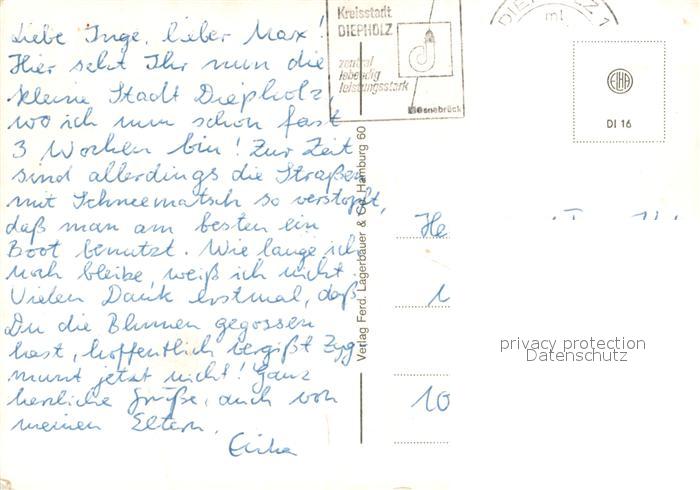 Liebe Inge, lieber Max!
Hier seht Ihr nun die
kleine Stadt Diepholz,
wo ich nun schon fast
3 Wochen bin! Zur Zeit
sind allerdings die Straßen
mit Schneematsch so verstopft,
daß man am besten ein
Boot benutzt. Wie lange ich
noch bleibe, weiß ich nicht.
Vielen Dank erstmal, daß
Du die Blumen gegossen
hast, hoffentlich vergißt Zyg-
munt jetzt nicht! Ganz
herzliche Grüße, auch von
meinen Eltern.
Erika
Kreisstadt
DIEPHOLZ
zentral
lebendig
leistungsstark
Osnabrück
DIEPHOLZ 1
ml
EKA
DI 16
Verlag Ferd. Lagerbauer & Co. Hamburg 60
He
10
privacy protection
Datenschutz